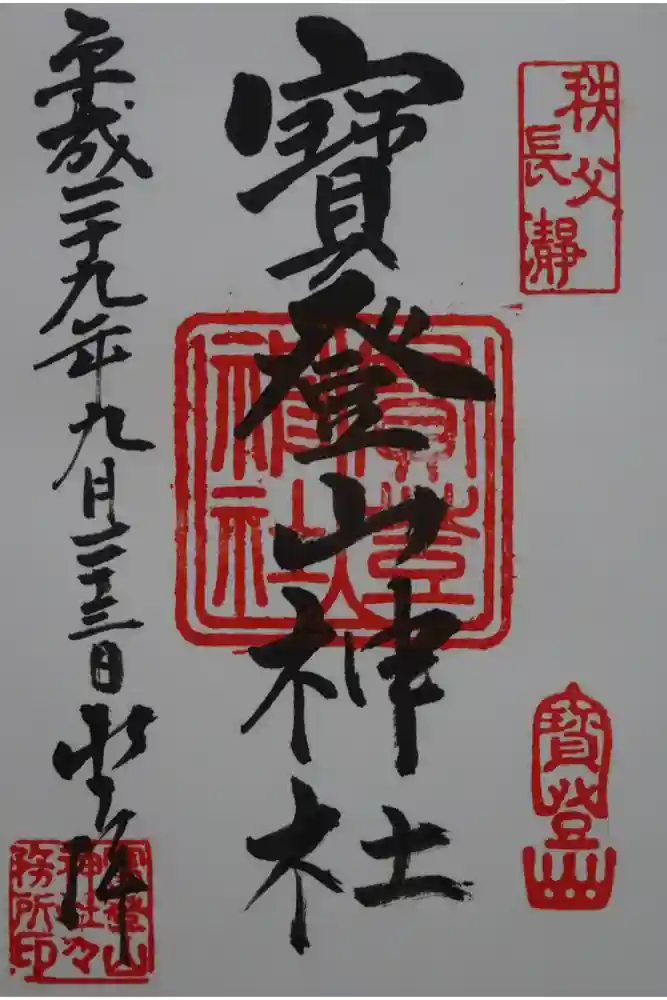 秩父
長瀞
寳登山神社
寳登山
神社
寳登山
平成二十九年九月二十三日 登拝
寳登山
神社々
務所印